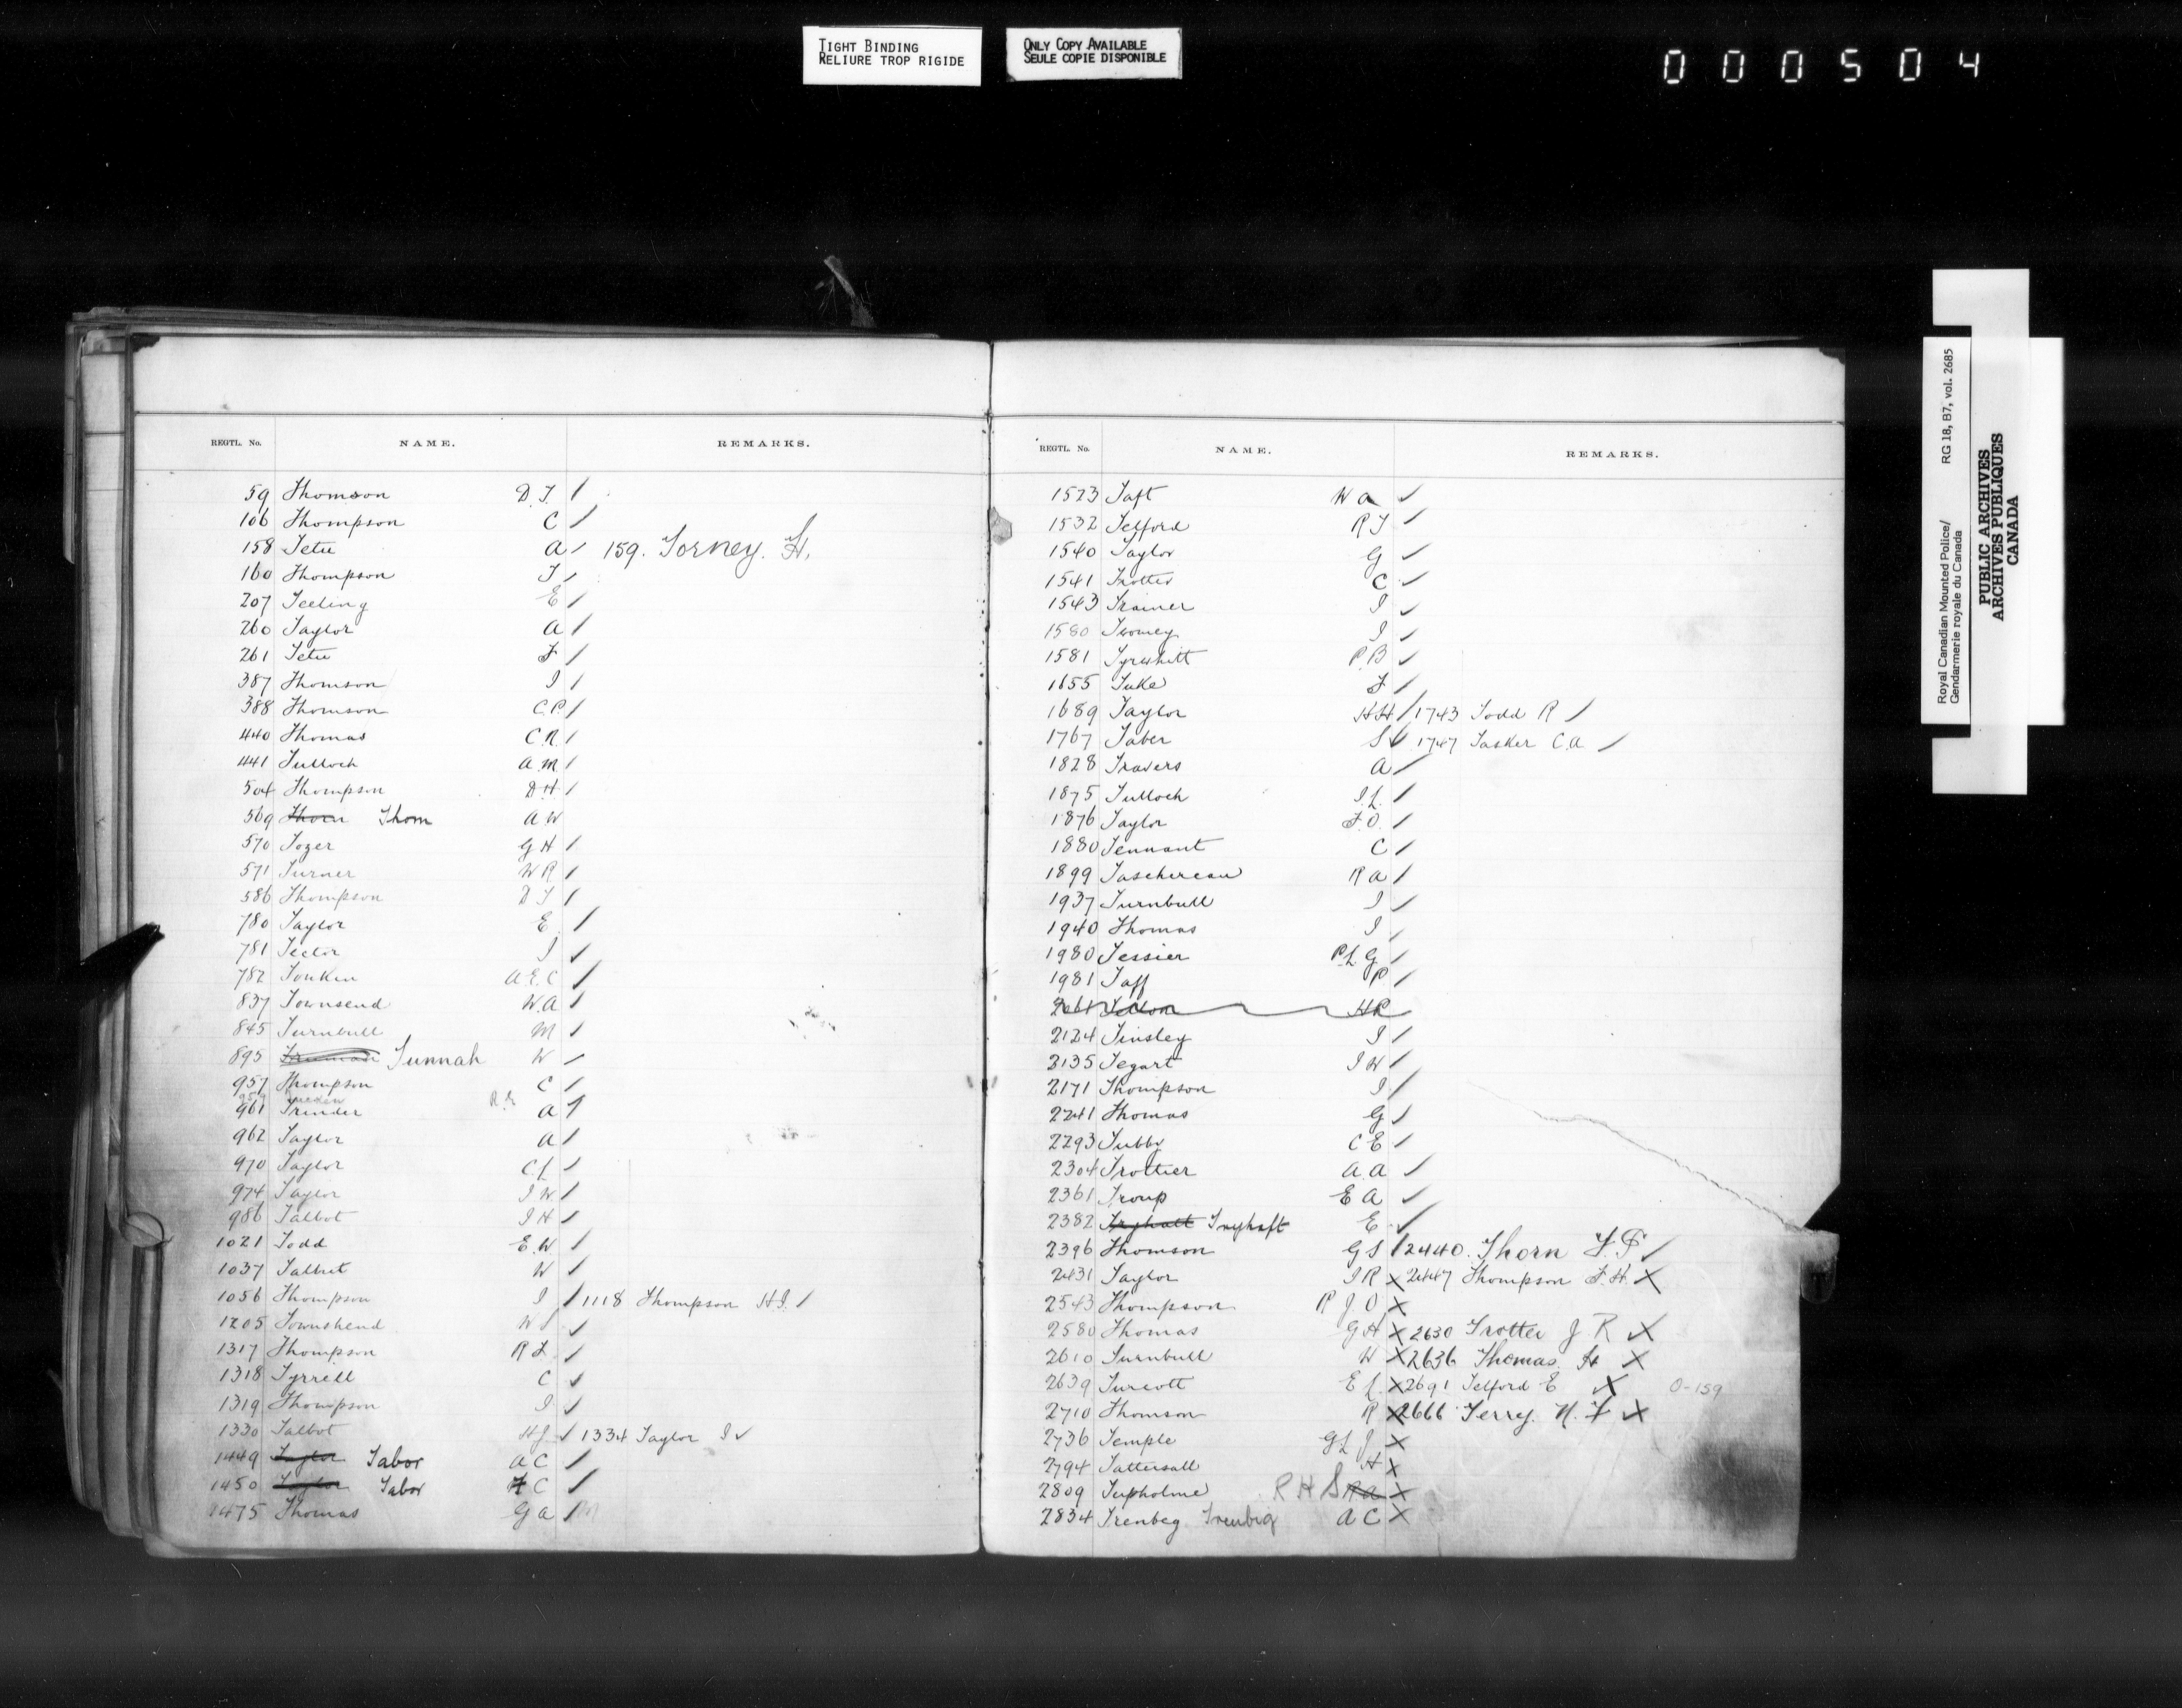 TIGHT BINDING
RELIURE TROP RIGIDE
ONLY COPY AVAILABLE
SEULE COPIE DISPONIBLE
000504
REGTL. No. NAME. REMARKS.
59 Thomson D T /
106 Thompson C /
158 Tetu A / 159. Torney. H.
160 Thompson J /
207 Teeling E /
260 Taylor A /
261 Tetu F /
387 Thomson J /
388 Thomson C.P. /
440 Thomas C.R. /
441 Tulloch A.M. /
504 Thompson D H /
569 Thorn Thom A W
570 Tozer G H /
571 Turner W R /
586 Thompson D T /
780 Taylor E /
781 Tector J /
782 Tonkin A.E.C /
837 Townsend W.A /
845 Turnbull M /
895 Tunnah W /
957 Thompson C /
961 Trinder A /
962 Taylor A /
970 Taylor C L /
974 Taylor J W /
986 Talbot J H /
1021 Todd E.W /
1037 Talbot W /
1056 Thompson J / 1118 Thompson H J. /
1205 Townshend W J ✓
1317 Thompson R L ✓
1318 Tyrrell C ✓
1319 Thompson J ✓
1330 Talbot H J ✓ 1334 Taylor J ✓
1449 Taylor Tabor A C /
1450 Taylor Tabor F C /
1475 Thomas G A / M
REGTL. No. NAME. REMARKS.
1523 Taft W A ✓
1532 Telford R J ✓
1540 Taylor G ✓
1541 Trotter C ✓
1543 Trainer J ✓
1580 Twomey J ✓
1581 Tyrwhitt P.B ✓
1655 Tuke F /
1689 Taylor H H / 1743 Todd R /
1767 Taber S ✓ 1747 Tasker C.A /
1828 Travers A /
1875 Tulloch J.L. /
1876 Taylor F.O. /
1880 Tennant C /
1899 Taschereau R A /
1937 Turnbull J /
1940 Thomas J /
1980 Tessier P.L.G /
1981 Taff P /
H R
2124 Tinsley J /
2135 Tegart J W /
2171 Thompson J /
2241 Thomas G /
2293 Tubby C E /
2304 Trottier A.A ✓
2361 Troup E A ✓
2382 Tryhatt Tryhaft E ✓
2396 Thomson G S / 2440. Thorn F. P ✓
2431 Taylor J R X 2447 Thompson F. H. X
2543 Thompson R J. O X
2580 Thomas G H X 2630 Trotter J R X
2610 Turnbull W X 2636 Thomas H X
2639 Turcott E L. X 2691 Telford E X 0-159
2710 Thomson R X 2666 Terry. N. F X
2736 Temple G L J. X
2794 Tattersall H X
2809 Tupholme R H S R A X
2834 Trenbeg Trenbig A C X
Royal Canadian Mounted Police/
Gendarmerie royale du Canada
RG 18, B7, vol. 2685
PUBLIC ARCHIVES
ARCHIVES PUBLIQUES
CANADA